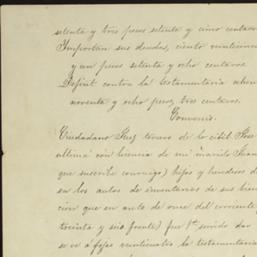 setenta y tres pesos setenta y cinco centavos
Importan sus deudas, ciento veinticinco
y un pesos setenta y ocho centavos
Déficit contra la testamentaria ochen
noventa y ocho pesos, tres centavos.
Convenio.
Ciudadano Juez tercero de lo civil Jose
ultima con licencia de mi marido Juan
que suscribe conmigo) hijos y herederos de
en los autos de inventarios de sus bien
ción que en auto de once del corriente
tocinta y seis frente) fué 1º servido dar
se vé á fojas veintinueve la testamentaria